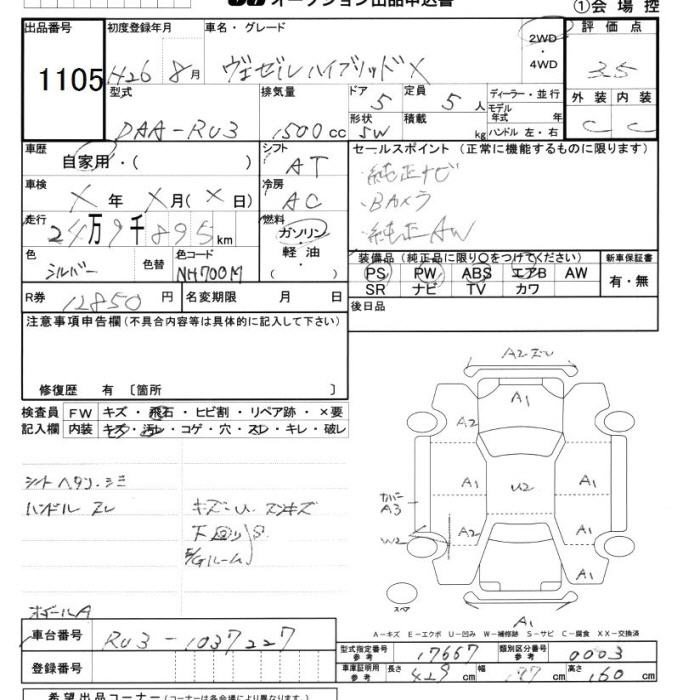 オークション出品申込書
①会場控
出品番号 初度登録年月 車名・グレード 2WD・4WD 評価点
1105 H26 8月 ヴェゼルハイブリッドX 3.5
型式 排気量 ドア 5 定員 5人 ディーラー・並行 外装 内装
DAA-RU3 1500cc 形状 5W 積載 kg モデル年式 年 C C
ハンドル 左・右
車歴 自家用・( ) シフト AT セールスポイント (正常に機能するものに限ります)
車検 X年 X月(X日) 冷房 AC
・純正ナビ
・Bカメラ
・純正AW
走行 24万9千895km 燃料 ガソリン・軽油 ( )
色 シルバー 色替 色コード NH700M
装備品 (純正品に限り○をつけてください) 新車保証書
PS PW ABS エアB AW 有・無
SR ナビ TV カワ
R券 12850円 名変期限 月 日 後日品
注意事項申告欄 (不具合内容等は具体的に記入して下さい)
修復歴 有 〔箇所 〕
検査員 FW キズ・飛石・ヒビ割・リペア跡・×要
記入欄 内装 キズ・汚レ・コゲ・穴・スレ・キレ・破レ
シートヘタリ・シミ
ハンドルスレ
キズ・U. スンキズ
下回りS
E/Gルーム
ボデーA
A2ズレ
A1
A2
カバー
A3
A1
U2
A1
W2
A2
A1
A1
スペア
A1
A-キズ E-エクボ U-凹み W-補修跡 S-サビ C-腐食 XX-交換済
車台番号 RU3-1037227
登録番号
型式指定番号 参考 17667 類別区分番号 参考 0003
車庫証明用 参考 長さ 429cm 幅 177cm 高さ 160cm
希望出品コーナー (コーナーは各会場により異なります)